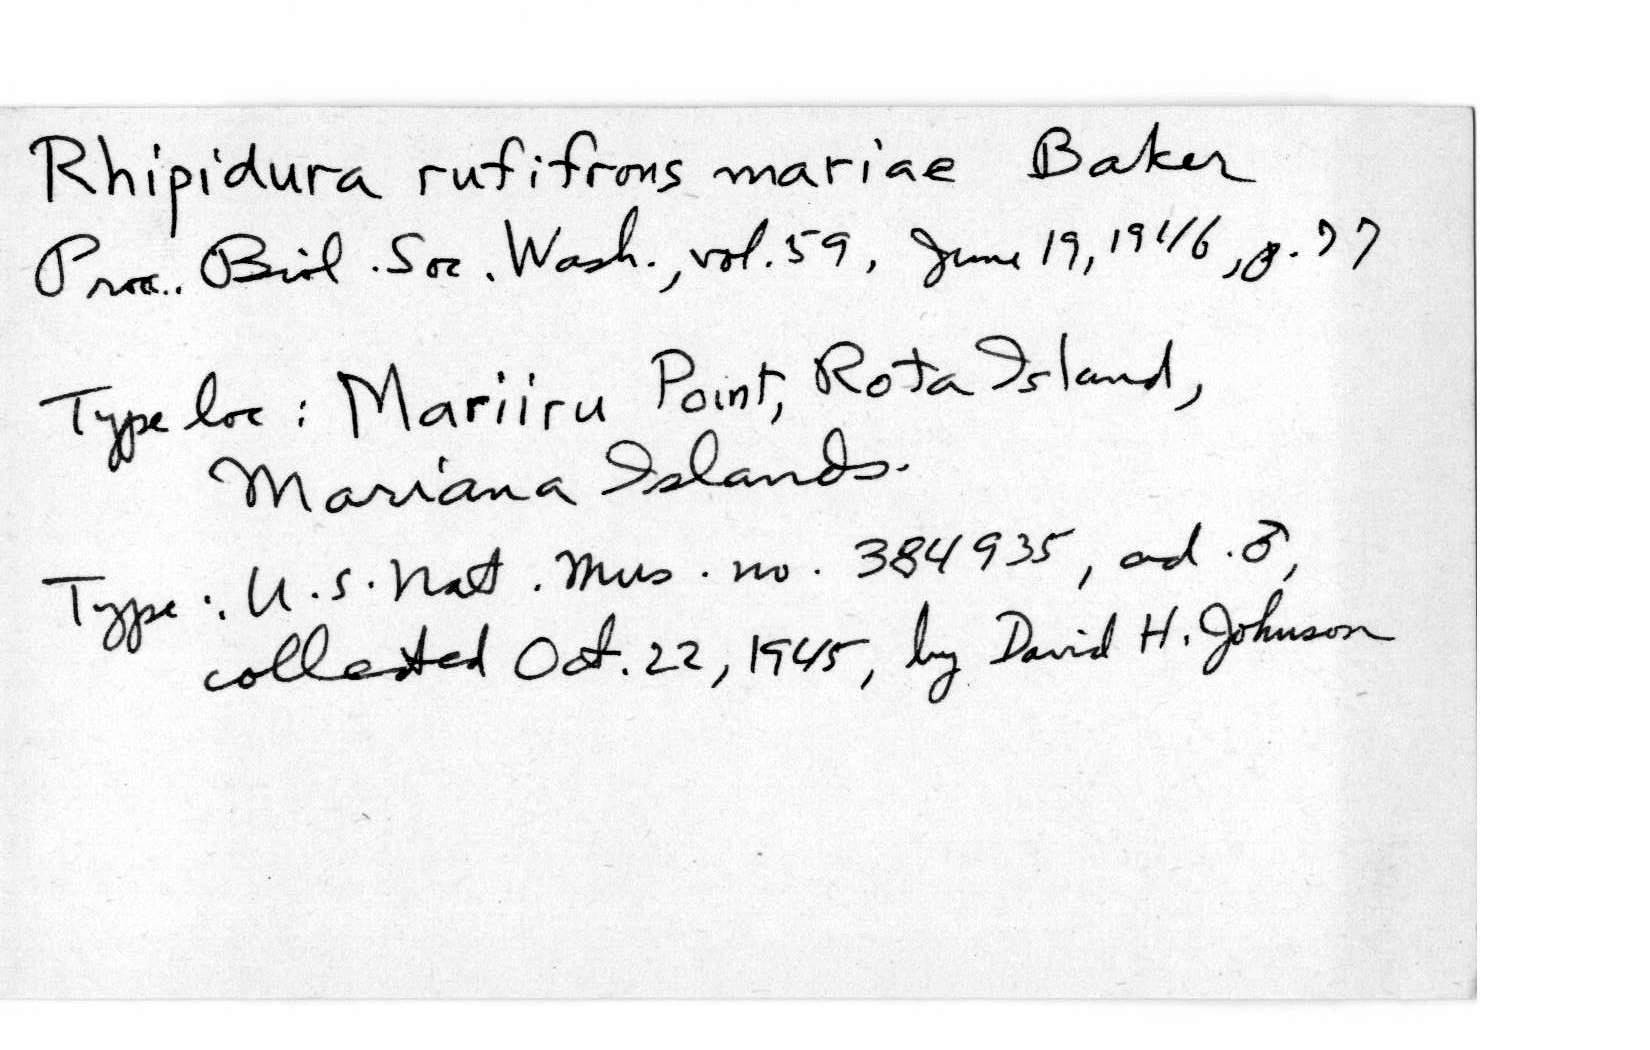 Rhipidura rufifrons mariae Baker
Proc. Biol. Soc. Wash., vol. 59, June 19, 1946, p. 77
Type loc: Mariiru Point, Rota Island,
Mariana Islands.
Type: U.S. Nat. Mus. no. 384935, ad. ♂,
collected Oct. 22, 1945, by David H. Johnson